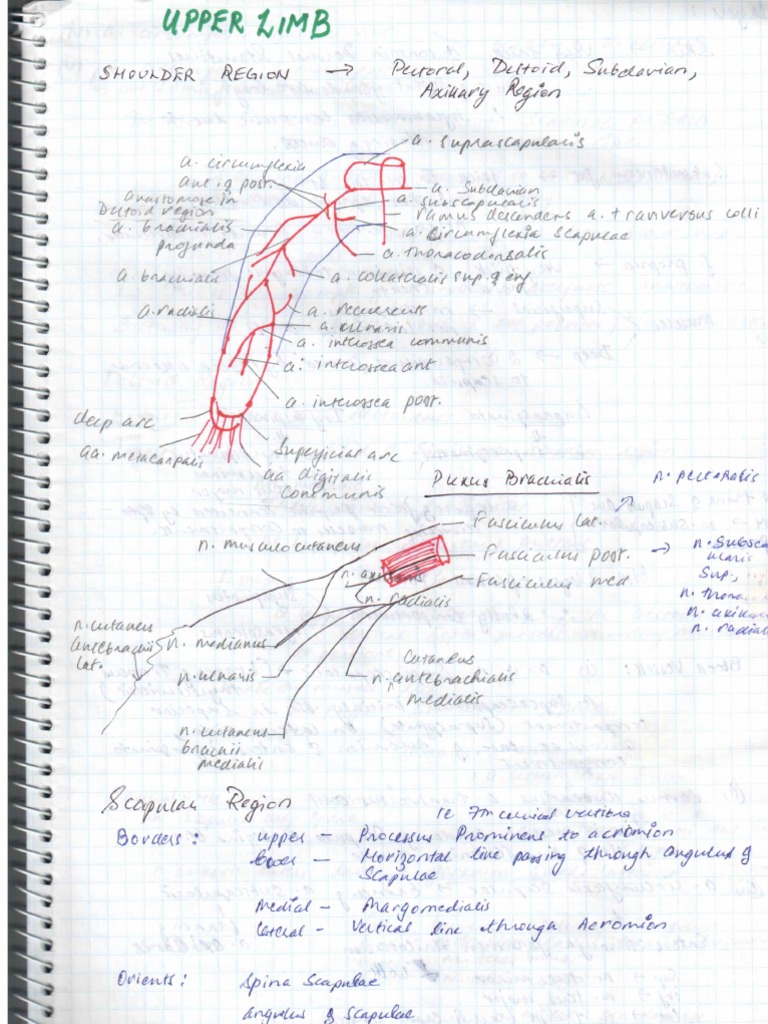 UPPER LIMB
SHOULDER REGION → Pectoral, Deltoid, Subclavian,
Axillary Region
a. suprascapularis
a. circumflexia
ant. & post.
anastomose in
Deltoid region
a. brachialis
profunda
a. brachialis
a. radialis
a. Subclavian
a. subscapularis
ramus decendens a. tranversus colli
a. circumflexia scapulae
a. thoracodorsalis
a. collateralis sup. & inf
a. recurrents
a. ulnaris
a. interossea communis
a. interossea ant
a. interossea post.
deep arc
aa. metacarpalis
Superficial arc
aa digitalis
communis
Plexus Brachialis
n. pectoralis
Fasciculus lat.
n. musculocutaneus
Fasciculus post. →
n. Subsca
ularis
Sup.,
n. thora
n. axi
n. radia
n. radialis
Fasciculus med.
n. cutaneus
antebrachii
lat.
n. medianus
n. ulnaris
Cutaneus
n. antebrachialis
medialis
n. cutaneus
brachii
medialis
Scapular Region
ie 7th cervical vertebra
Borders: upper - Processus Prominens to acromion
lower - Horizontal line passing through angulus of
Scapulae
Medial - Margomedialis
lateral - Vertical line through Acromion
Orients: Spina Scapulae
angulus of scapulae